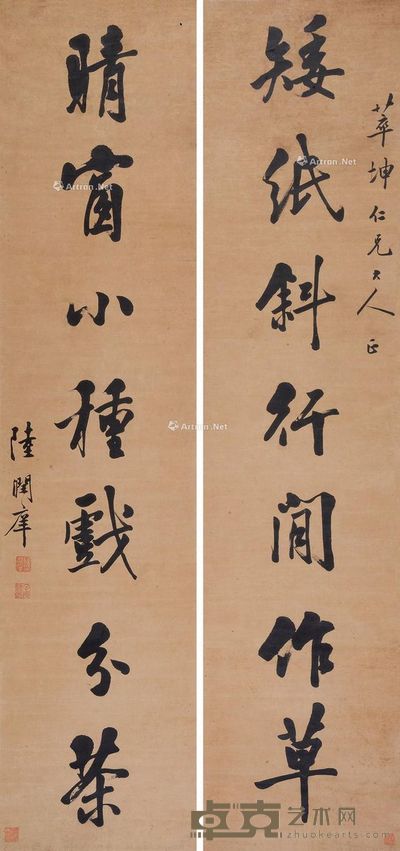 萃坤仁兄大人正
矮纸斜行闲作草
晴窗小种戏分茶
陆润庠
Artron.Net
Artron.Net
Artron.Net
卓克艺术网
zhuokearts.com